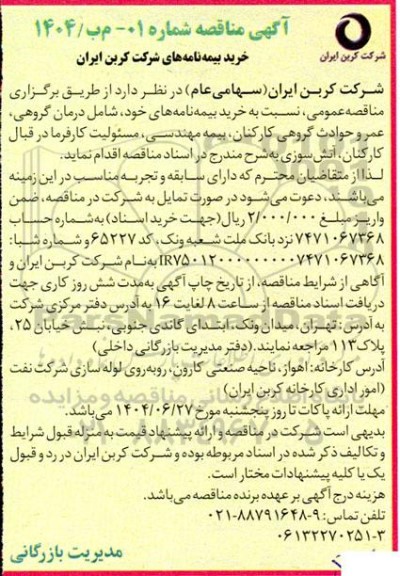 آگهی مناقصه شماره ۰۱- م‌ب/۱۴۰۴
شرکت کربن ایران
خرید بیمه‌نامه‌های شرکت کربن ایران
شرکت کربن ایران (سهامی‌عام) در نظر دارد از طریق برگزاری
مناقصه‌عمومی، نسبت به خرید بیمه‌نامه‌های خود، شامل درمان گروهی،
عمر و حوادث گروهی کارکنان، بیمه مهندسی، مسئولیت کارفرما در قبال
کارکنان، آتش‌سوزی به‌شرح مندرج در اسناد مناقصه اقدام نماید.
لذا از متقاضیان محترم که دارای سابقه و تجربه مناسب در این زمینه
می‌باشند، دعوت می‌شود در صورت تمایل به شرکت در مناقصه، ضمن
واریز مبلغ ۲/۰۰۰/۰۰۰ ریال (جهت خرید اسناد) به‌شماره حساب
۷۴۷۱۰۶۷۳۶۸ نزد بانک ملت شعبه ونک، کد ۶۵۲۲۷ و شماره شبا:
IR۷۵۰۱۲۰۰۰۰۰۰۰۰۰۷۴۷۱۰۶۷۳۶۸ به‌نام شرکت کربن ایران و
آگاهی از شرایط مناقصه، از تاریخ چاپ آگهی به‌مدت شش روز کاری جهت
دریافت اسناد مناقصه از ساعت ۸ لغایت ۱۶ به آدرس دفتر مرکزی شرکت
به آدرس: تهران، میدان ونک، ابتدای گاندی جنوبی، نبش خیابان ۲۵،
پلاک ۱۱۳ مراجعه نمایند. (دفتر مدیریت بازرگانی داخلی)
آدرس کارخانه: اهواز، ناحیه صنعتی کارون، روبه‌روی لوله سازی شرکت نفت
(امور اداری کارخانه کربن ایران)
مهلت ارائه پاکات تا روز پنجشنبه مورخ ۱۴۰۴/۰۶/۲۷ می‌باشد.
بدیهی است شرکت در مناقصه و ارائه پیشنهاد قیمت به منزله قبول شرایط
و تکالیف ذکر شده در اسناد مربوطه بوده و شرکت کربن ایران در رد و قبول
یک یا کلیه پیشنهادات مختار است.
هزینه درج آگهی بر عهده برنده مناقصه می‌باشد.
تلفن تماس: ۹-۸۸۷۹۱۶۴۸-۰۲۱
۰۶۱۳۲۲۷۰۲۵۱-۳
مدیریت بازرگانی